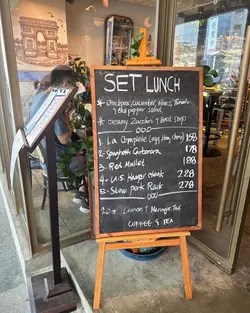 SET LUNCH
* Chickpea, Cucumber, Olives, Tomato
& egg pepper salad
* Creamy Zucchini & Basil Soup
1. La Complete (egg, Ham, Chez) 158
2. Spaghetti Carbonara 178
3. Red Mullet 188
4. U.S. Hanger Steak 228
5. Slow Pork Rack 278
20+ Lemon Meringue Tart
COFFEE & TEA